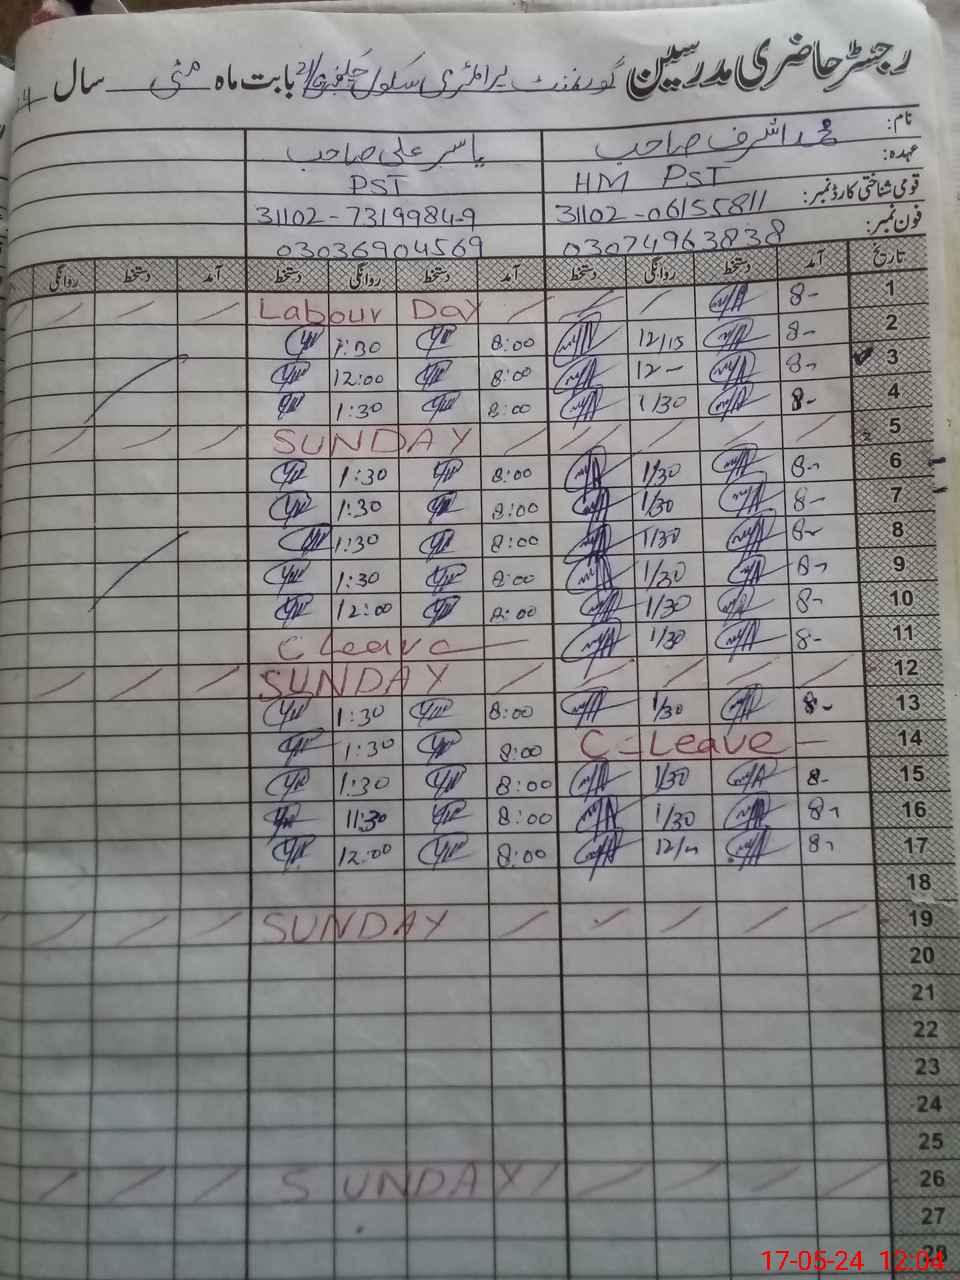 رجسٹر حاضری مدرسین گورنمنٹ پرائمری سکول بابت ماہ مئی سال
نام: محمد اشرف صاحب یاسر علی صاحب
عہدہ: HM PST PST
قومی شناختی کارڈ نمبر: 31102-06155811 31102-7319984-9
فون نمبر: 03074963838 03036904569
تاریخ آمد دستخط روانگی دستخط آمد دستخط روانگی دستخط آمد دستخط روانگی
1 8- Labour Day
2 8- 12/15 8:00 1:30
3 8- 12- 8:00 12:00
4 8- 1/30 8:00 1:30
5 SUNDAY
6 8- 1/30 8:00 1:30
7 8- 1/30 8:00 1:30
8 8- 1/30 8:00 1:30
9 8- 1/30 8:00 1:30
10 8- 1/30 8:00 12:00
11 8- 1/30 C Leave
12 SUNDAY
13 8- 1/30 8:00 1:30
14 C-Leave 8:00 1:30
15 8- 1/30 8:00 1:30
16 8- 1/30 8:00 11:30
17 8- 12/- 8:00 12:00
18
19 SUNDAY
20
21
22
23
24
25
26 SUNDAY
27
28
17-05-24 12:04